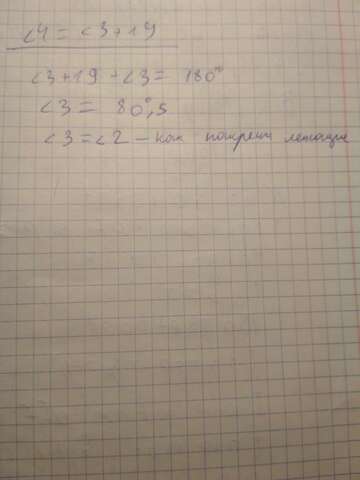 ∠4 = ∠3+19
∠3+19+∠3= 180°
∠3 = 80°,5
∠3=∠2 – как накрест лежащие